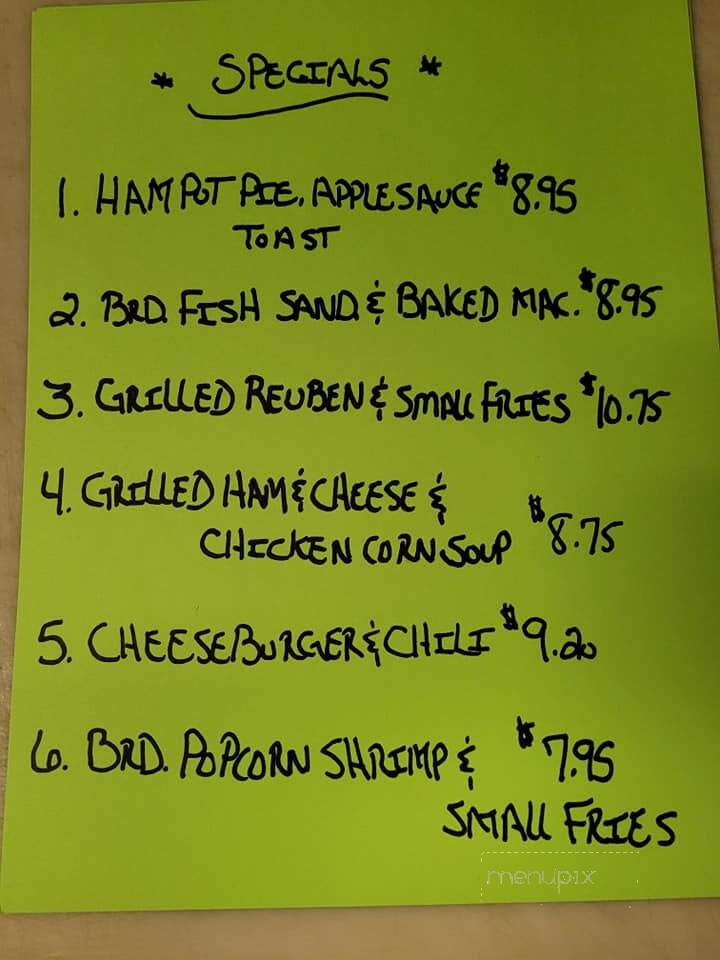 * SPECIALS *
1. HAM POT PIE, APPLESAUCE $8.95
TOAST
2. BRD. FISH SAND. & BAKED MAC. $8.95
3. GRILLED REUBEN & SMALL FRIES $10.75
4. GRILLED HAM & CHEESE &
CHICKEN CORN SOUP $8.75
5. CHEESEBURGER & CHILI $9.20
6. BRD. POPCORN SHRIMP & $7.95
SMALL FRIES
menupix